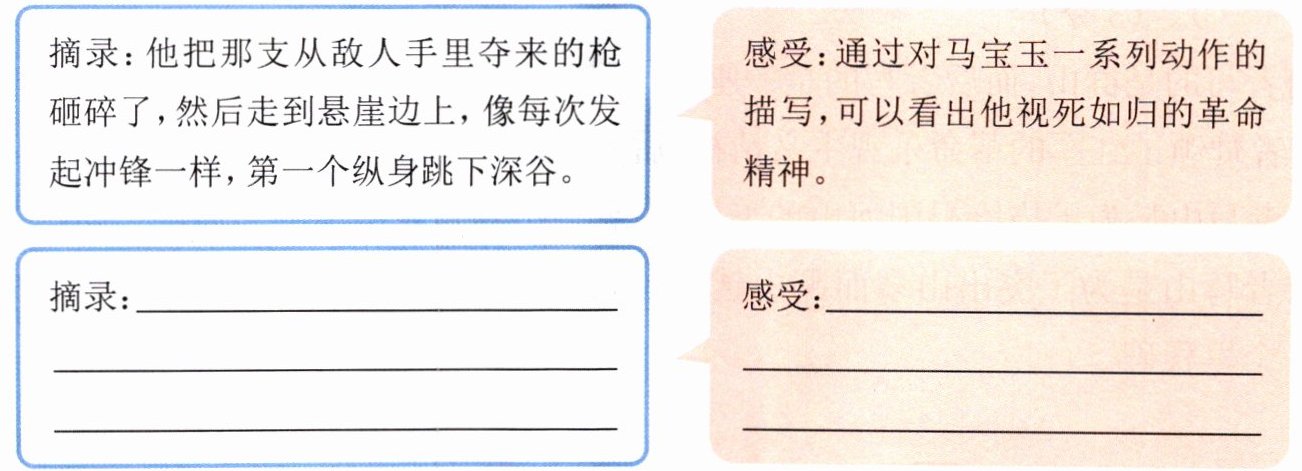 摘录:他把那支从敌人手里夺来的枪
砸碎了,然后走到悬崖边上,像每次发
起冲锋一样,第一个纵身跳下深谷。
感受:通过对马宝玉一系列动作的
描写,可以看出他视死如归的革命
精神。
摘录:
感受: